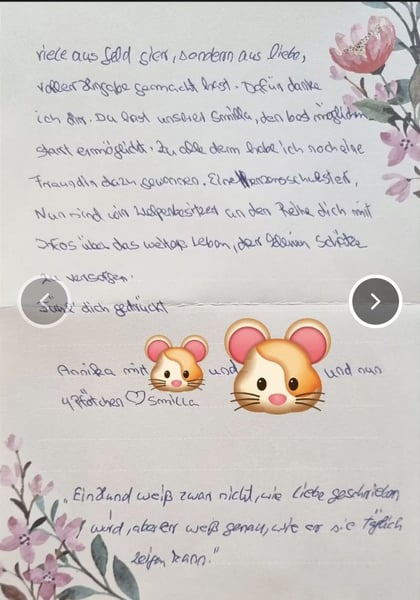 viele aus Geld gier, sondern aus Liebe,
voller Hingabe gemacht hast. Dafür danke
ich dir. Du hast unserer Smilla, den best möglichen
Start ermöglicht. Zu alle dem habe ich noch eine
Freundin dazu gewonnen. Eine
Nun sind wir Welpenbesitzer an der Reihe dich mit
Infos über das weitere Leben, der kleinen Schätze
zu versorgen.
dich gedrückt
Annika mit und und nun
4 Pfötchen ♡ Smilla
„Ein Hund weiß zwar nicht, wie Liebe geschrieben
wird, aber er weiß genau, wie er sie täglich
zeigen kann."